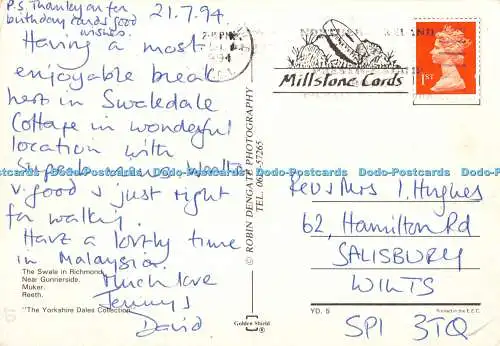 P.S. Thankyou for
birthday cards & good
wishes.
21.7.94
Having a most
enjoyable break
here in Swaledale
Cottage in wonderful
location with
superb views. Weather
v. good & just right
for walking.
Have a lovely time
in Malaysia.
Much love
Jenny &
David
The Swale in Richmond,
Near Gunnerside,
Muker.
Reeth.
"The Yorkshire Dales Collection"
© ROBIN DENGATE PHOTOGRAPHY
Golden Shield
®
Millstone Cards
1ST
Rev & Mrs I. Hughes
62, Hamilton Rd
SALISBURY
WILTS
SP1 3TQ
YD. 5
Printed in the E.E.C.
Dodo-Postcards Dodo-Postcards Dodo-Postcards Dodo-Postcards Dodo-Postcards